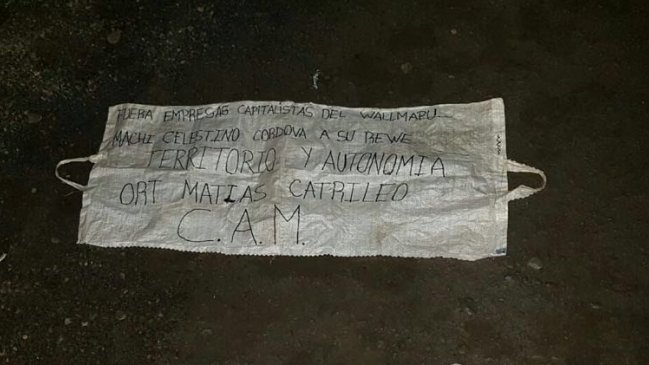 FUERA EMPRESAS CAPITALISTAS DEL WALLMAPU
MACHI CELESTINO CORDOVA A SU REWE
TERRITORIO Y AUTONOMIA
ORT MATIAS CATRILEO
C.A.M.